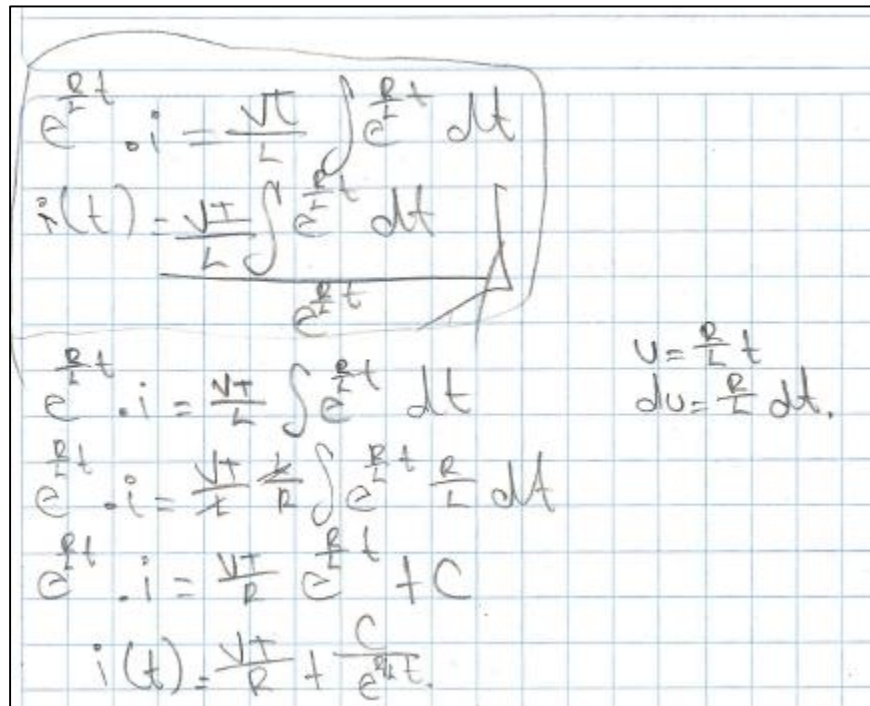 e^{\frac{R}{L}t} . i = \frac{VT}{L} ∫ e^{\frac{R}{L}t} dt
i(t) = \frac{\frac{VT}{L} ∫ e^{\frac{R}{L}t} dt}{e^{\frac{R}{L}t}}
e^{\frac{R}{L}t} . i = \frac{VT}{L} ∫ e^{\frac{R}{L}t} dt
u = \frac{R}{L} t
du = \frac{R}{L} dt.
e^{\frac{R}{L}t} . i = \frac{VT}{L} \frac{L}{R} ∫ e^{\frac{R}{L}t} \frac{R}{L} dt
e^{\frac{R}{L}t} . i = \frac{VT}{R} e^{\frac{R}{L}t} + C
i(t) = \frac{VT}{R} + \frac{C}{e^{R/L t}}.